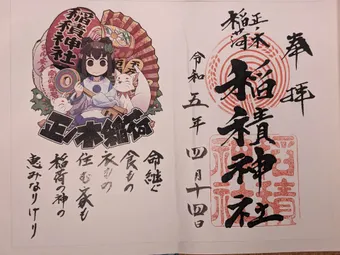 奉拝
正ノ木
稲荷
稲積神社
令和五年四月十四日
稲積神社
正ノ木稲荷
命継ぐ
食もの
衣もの
住む家も
稲荷の神の
恵みなりけり